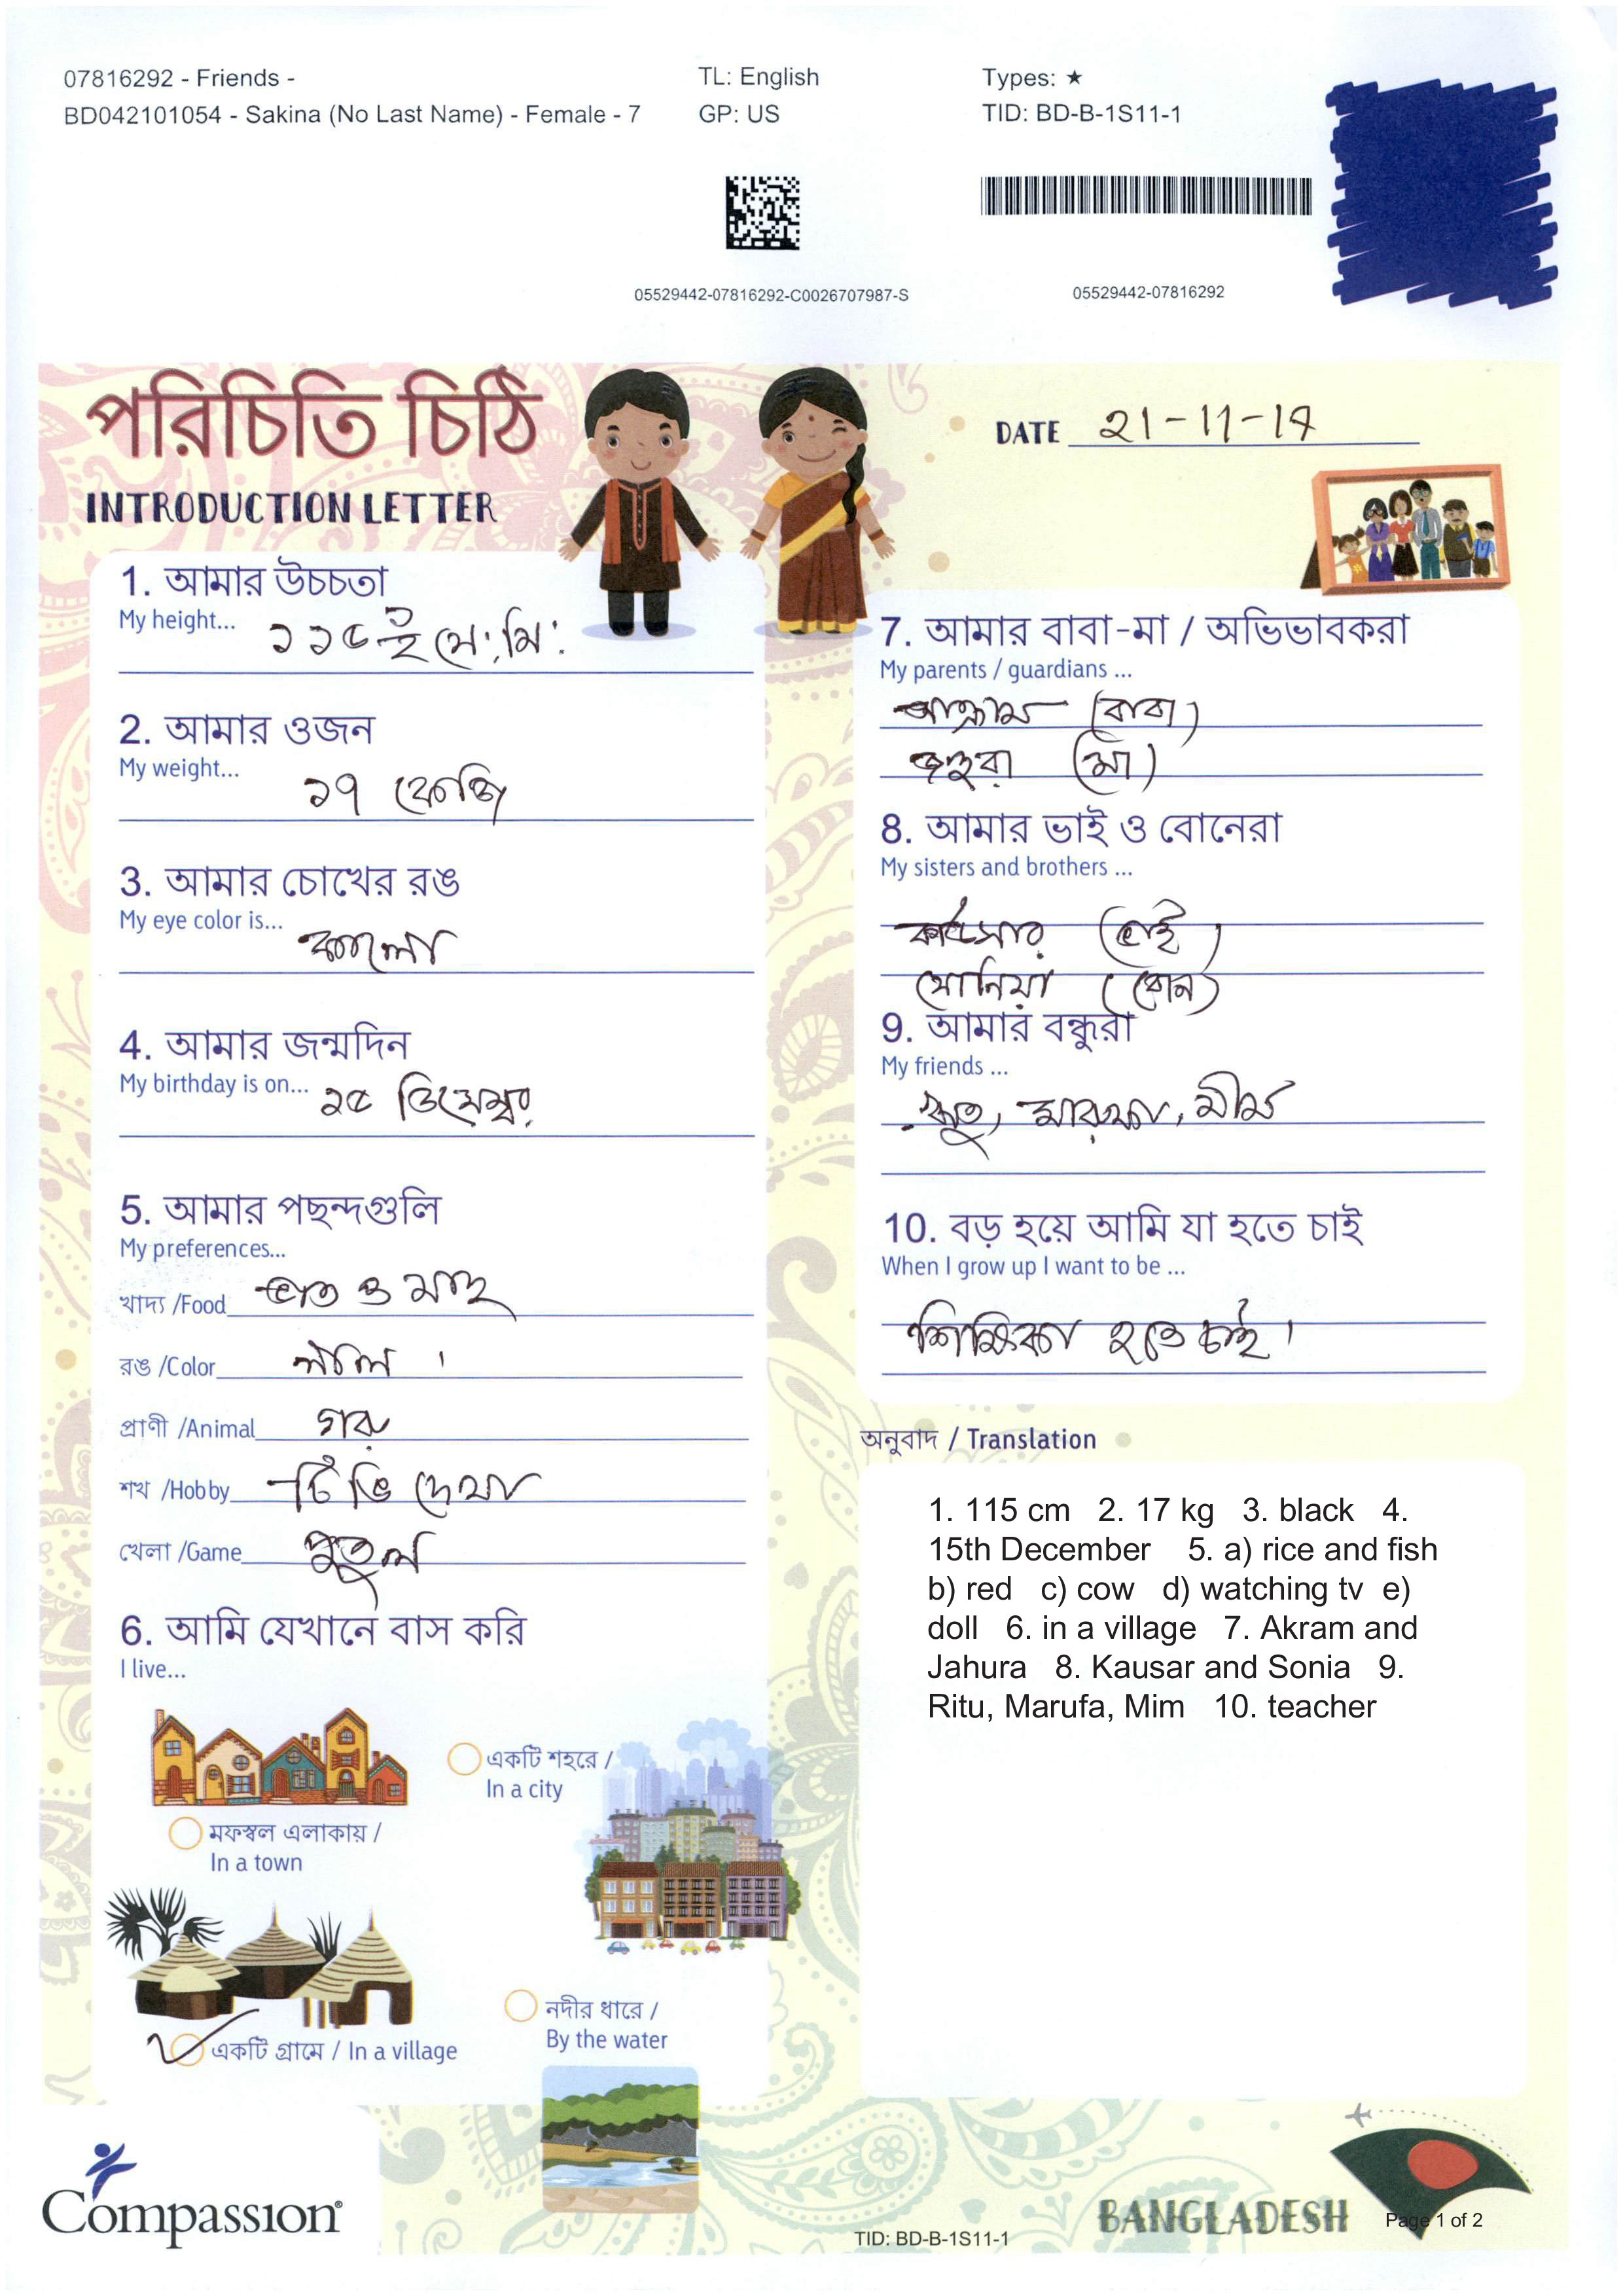 07816292 - Friends -
BD042101054 - Sakina (No Last Name) - Female - 7
TL: English
GP: US
Types: ★
TID: BD-B-1S11-1
05529442-07816292-C0026707987-S
05529442-07816292
পরিচিতি চিঠি
INTRODUCTION LETTER
DATE 21-11-17
1. আমার উচ্চতা
My height...
১১৫ সে:মি:
2. আমার ওজন
My weight...
১৭ কেজি
3. আমার চোখের রঙ
My eye color is...
কালো
4. আমার জন্মদিন
My birthday is on...
১৫ ডিসেম্বর
5. আমার পছন্দগুলি
My preferences...
খাদ্য /Food ভাত ও মাছ
রঙ /Color লাল ।
প্রাণী /Animal গরু
শখ /Hobby টিভি দেখা
খেলা /Game পুতুল
6. আমি যেখানে বাস করি
I live...
একটি শহরে /
In a city
মফস্বল এলাকায় /
In a town
একটি গ্রামে / In a village
নদীর ধারে /
By the water
7. আমার বাবা-মা / অভিভাবকরা
My parents / guardians ...
আক্রাম (বাবা)
জহুরা (মা)
8. আমার ভাই ও বোনেরা
My sisters and brothers ...
কাউসার (ভাই)
সোনিয়া (বোন)
9. আমার বন্ধুরা
My friends ...
ঋতু, মারুফা, মীম
10. বড় হয়ে আমি যা হতে চাই
When I grow up I want to be ...
শিক্ষিকা হতে চাই ।
অনুবাদ / Translation
1. 115 cm 2. 17 kg 3. black 4.
15th December 5. a) rice and fish
b) red c) cow d) watching tv e)
doll 6. in a village 7. Akram and
Jahura 8. Kausar and Sonia 9.
Ritu, Marufa, Mim 10. teacher
Compassion®
TID: BD-B-1S11-1
BANGLADESH
Page 1 of 2